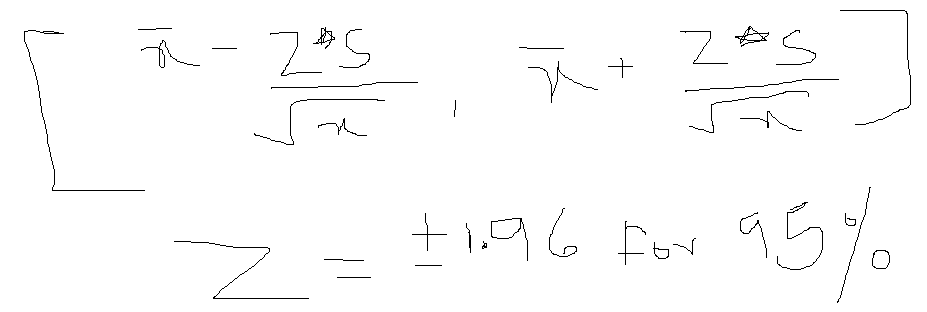 [ x̄ - Z*S/√n , x̄ + Z*S/√n ]
Z = ±1.96 for 95%